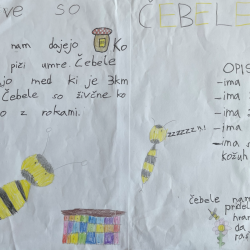 ve so
nam dajejo
Ko
pizi umre Čebele
jo med ki je 3km
Čebele so živčne ko
o z rokami.
ČEBELE
OPIS
-ima
-ima
-ima
-ima
kožuh
zzzzzz!!
čebele nam
hran
da